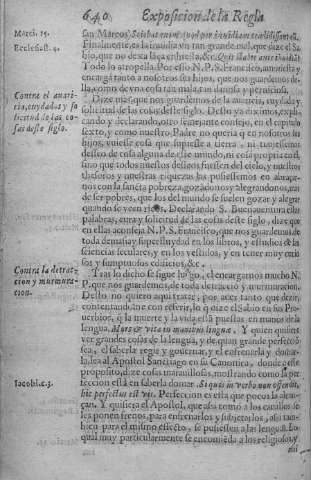 640. Exposicion de la Regla
Marci. 15.
san Marcos. Sciebat enim quod per inuidiam tradidissent
Ecclesiast. 9.
Finalmente, es la inuidia vn tan grande mal, que dize el Sa
Todo lo atropella. Por esso N. P. S. Francisco, auisa y
encarga tanto a nosotros sus hijos, que nos guardemos
della, como de vna cosa tan mala, tan dañosa y perniciosa.
Contra el auari
cia, cuydado y so
licitud de las co
sas deste siglo.
Dize mas, que nos guardemos de la auaricia, cuydado y
solicitud de las cosas deste siglo. Desto ya diximos, expli
cando y declarando, otro semejante consejo, en el capitulo
sexto, y como nuestro Padre no queria q en nosotros sus
hijos, vuiesse cosa que supiesse a tierra, ni tuuiessemos
desseo de cosa alguna deste mundo, ni cosa propria en el,
sino que todos nuestros desseos fuessen del cielo, y nuestros
thesoros y nuestras riquezas las pusiessemos en abraçar
nos con la sancta pobreza, gozandonos y alegrandonos, en
de ser pobres, que los del mundo se suelen gozar y alegrar
quando se veen ricos. Declarando S. Buenauentura estas
palabras, entra y solicitud de las cosas deste siglo, dize que
en ellas aconseja N. P. S. Francisco, que nos guardemos de
toda demasia y superfluydad en los libros, y estudios de las
sciencias seculares, y en los vestidos, y en tener muy ostio
sos y sumptuosos edificios, &c.
Contra la detrac
cion y murmura
cion.
Tras lo dicho se sigue luego, el encargarnos mucho N.
P. que nos guardemos, de toda detraccion y murmuracion.
Desto no quiero aqui tratar, por acer tanto que dezir,
contentando me con referir, lo q dize el Sabio en sus Pro
uerbios, q la muerte y la vida está puestas en manos de la
lengua. Mors & vita in manibus linguæ. Y quien quisiere
ver grandes cosas de la lengua, y de quan grande perfectiõ
sea, el saberla regir y gouernar, y el enfrenarla y domar
la, lea al Apostol Sanctiago en su Canonica, donde a este
proposito, dize cosas marauillosas, mostrando como la per
Iacobi. c. 3.
fection está en saberla domar. Si quis in verbo non offendit,
hic perfectus est vir. Perfection es esta que pocos la alcan-
çan. Y quisiera el Apostol, que assi como a los cauallos se
les ponen frenos, para enfrenarlos y subjetarlos, assi tam
bien para el mismo effecto, se pusiessen a las lenguas. Lo
qual muy particularmente se encomiẽda a los religiosos, y